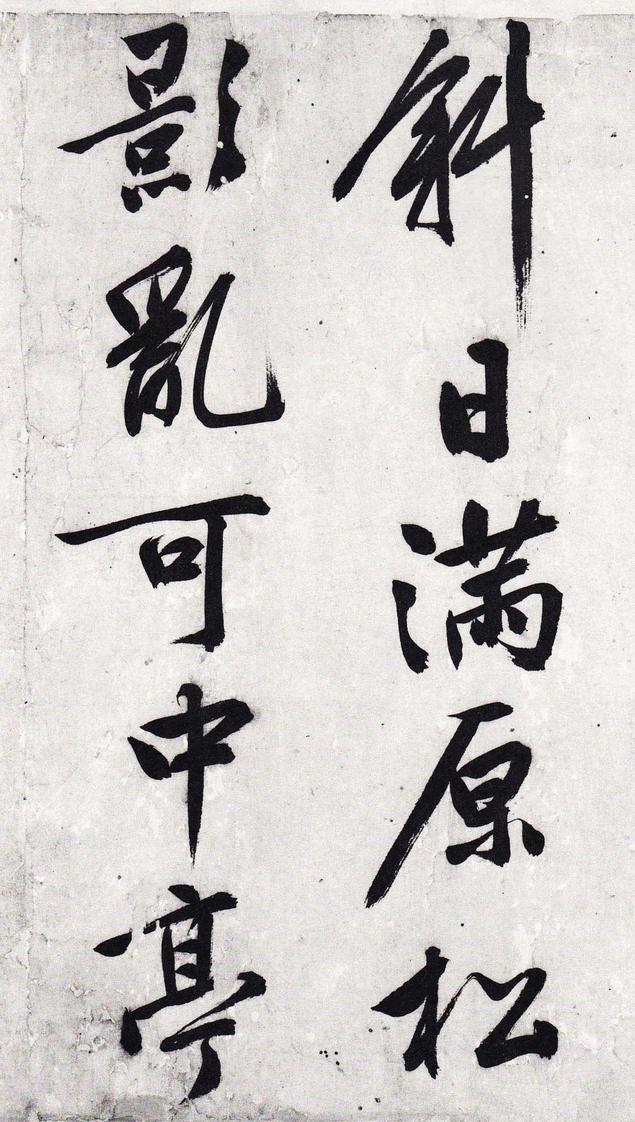 斜日满原松
影亂可中亭